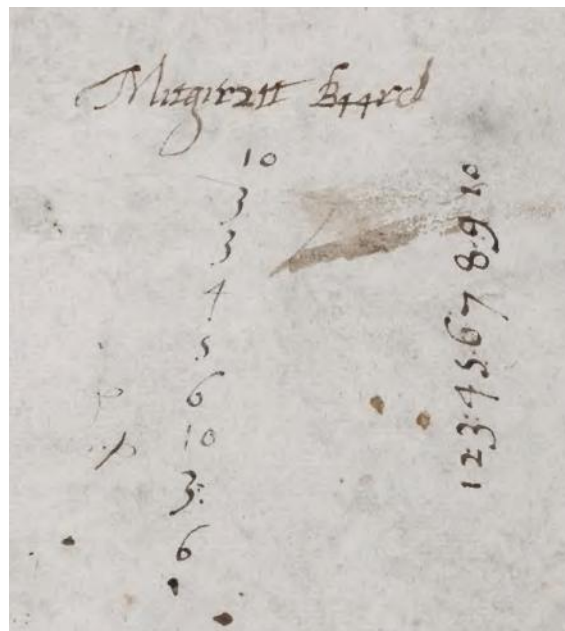 M1rg1r2tt B44rd
10
3
3
4
5
6
10
3:
6
1 2 3 4 5 6 7 8 9 10